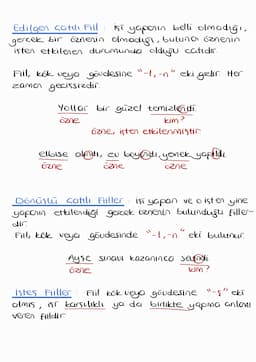 Edilgen Çatılı Fiil : İşi yapanın belli olmadığı,
gerçek bir öznenin olmadığı, bulunan öznenin
işten etkilenen durumunda olduğu çatıdır.
Fiil, kök veya gövdesine "-l, -n" eki gelir. Her
zaman geçişsizdir.
Yollar bir güzel temizlendi.
özne kim?
özne, işten etkilenmiştir.
elbise alındı, ev boyandı, yemek yapıldı
özne özne özne
Dönüşlü Çatılı Fiiller : İşi yapan ve o işten yine
yapanın etkilendiği gerçek öznenin bulunduğu fiiller-
dir.
Fiil, kök veya gövdesinde "-l, -n" eki bulunur.
Ayşe sınavı kazanınca sevindi
özne kim?
İşteş Fiiller : Fiil kök veya gövdesine "-ş" eki
almış, işi karşılıklı ya da birlikte yapma anlamı
veren fiildir.